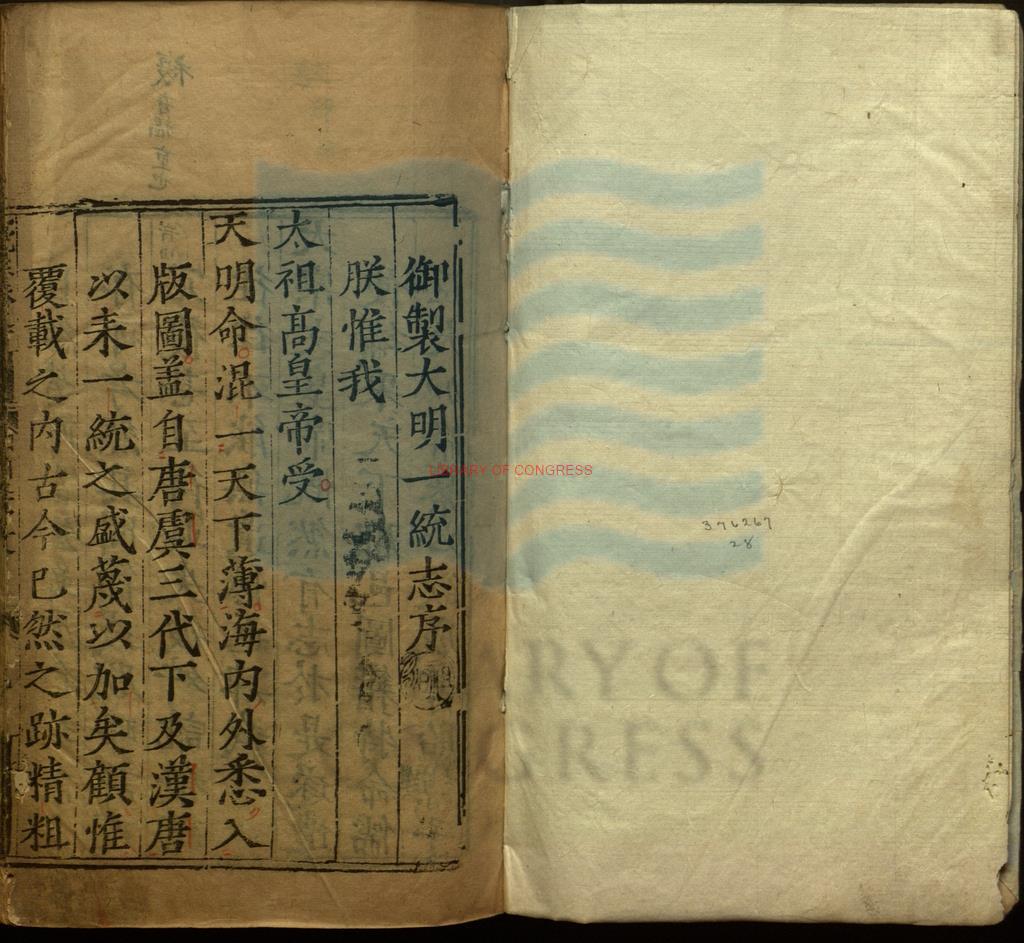 御製大明一統志序
朕惟我
太祖高皇帝受
天明命混一天下薄海内外悉入
版圖盖自唐虞三代下及漢唐
以来一統之盛蔑以加矣顧惟
覆載之内古今已然之跡精粗
LIBRARY OF CONGRESS
376267
28
RY OF
GRESS